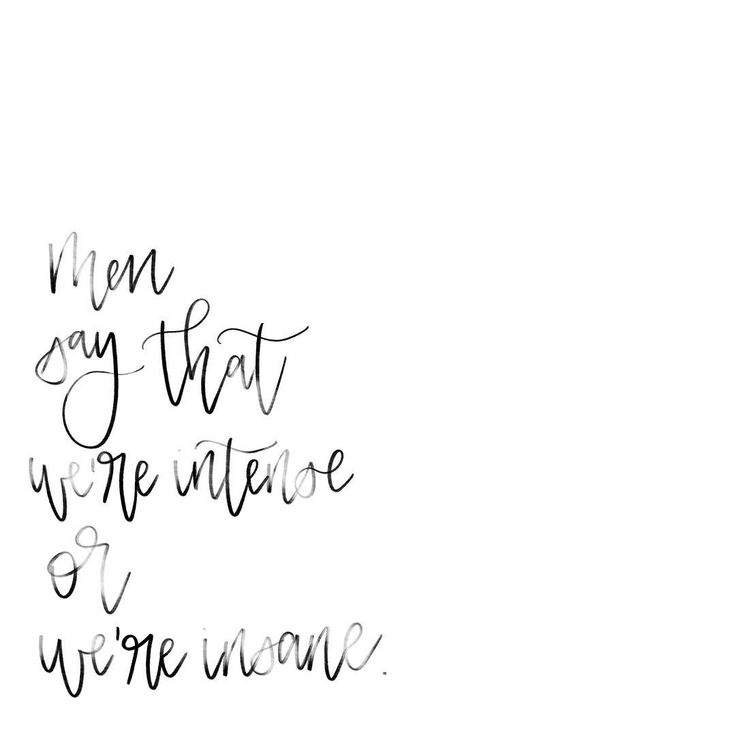 men
say that
we're intense
or
we're insane.